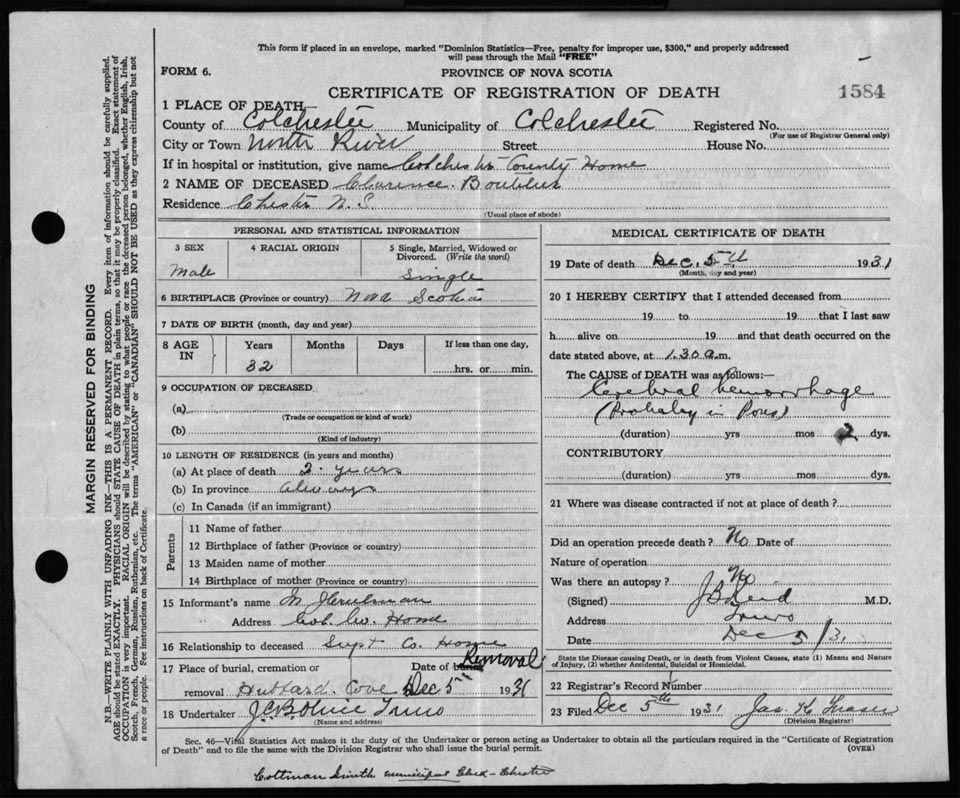 This form if placed in an envelope, marked "Dominion Statistics—Free, penalty for improper use, $300," and properly addressed
will pass through the Mail "FREE"
FORM 6.
PROVINCE OF NOVA SCOTIA
CERTIFICATE OF REGISTRATION OF DEATH
1584
1 PLACE OF DEATH—
County of Colchester Municipality of Colchester Registered No.
(For use of Registrar General only)
City or Town North River Street House No.
If in hospital or institution, give name Colchester County Home
2 NAME OF DECEASED Clarence
Residence Chester N.S.
(Usual place of abode)
PERSONAL AND STATISTICAL INFORMATION
3 SEX 4 RACIAL ORIGIN 5 Single, Married, Widowed or
Divorced. (Write the word)
Male Single
6 BIRTHPLACE (Province or country) Nova Scotia
7 DATE OF BIRTH (month, day and year)
8 AGE IN Years Months Days If less than one day,
32 hrs. or min.
9 OCCUPATION OF DECEASED
(a)
(Trade or occupation or kind of work)
(b)
(Kind of industry)
10 LENGTH OF RESIDENCE (in years and months)
(a) At place of death 2 years
(b) In province always
(c) In Canada (if an immigrant)
Parents
11 Name of father
12 Birthplace of father (Province or country)
13 Maiden name of mother
14 Birthplace of mother (Province or country)
15 Informant's name
Address Col. Co. Home
16 Relationship to deceased Supt Co. Home
17 Place of burial, cremation or Date of burial Removal
removal Hubbard Cove Dec 5th 1931
18 Undertaker Truro
(Name and address)
MEDICAL CERTIFICATE OF DEATH
19 Date of death Dec. 5th 1931
(Month, day and year)
20 I HEREBY CERTIFY that I attended deceased from
19 to 19 that I last saw
h alive on 19 and that death occurred on the
date stated above, at 1.30 a.m.
The CAUSE of DEATH was as follows:—
Cerebral hemorrhage
(Probably in Pons)
(duration) yrs mos 2 dys.
CONTRIBUTORY
(duration) yrs mos dys.
21 Where was disease contracted if not at place of death?
Did an operation precede death? No Date of
Nature of operation
Was there an autopsy? No
(Signed) M.D.
Address Truro
Date Dec 5/31
State the Disease causing Death, or in death from Violent Causes, state (1) Means and Nature
of Injury, (2) whether Accidental, Suicidal or Homicidal.
22 Registrar's Record Number
23 Filed Dec 5th 1931 Jas. K. Fraser
(Division Registrar)
Sec. 46—Vital Statistics Act makes it the duty of the Undertaker or person acting as Undertaker to obtain all the particulars required in the "Certificate of Registration
of Death" and to file the same with the Division Registrar who shall issue the burial permit.
(OVER)
Cottnam Smith municipal Clerk - Chester
MARGIN RESERVED FOR BINDING
N.B.—WRITE PLAINLY WITH UNFADING INK—THIS IS A PERMANENT RECORD. Every item of information should be carefully supplied.
AGE should be stated EXACTLY. PHYSICIANS should STATE CAUSE OF DEATH in plain terms, so that it may be properly classified. Exact statement of
OCCUPATION is very important. RACIAL ORIGIN will be described by stating to what people or race the deceased person belonged, whether English, Irish,
Scotch, French, German, Russian, Ruthenian, etc. The terms "AMERICAN" or "CANADIAN" SHOULD NOT BE USED as they express citizenship but not
a race or people. See instructions on back of Certificate.